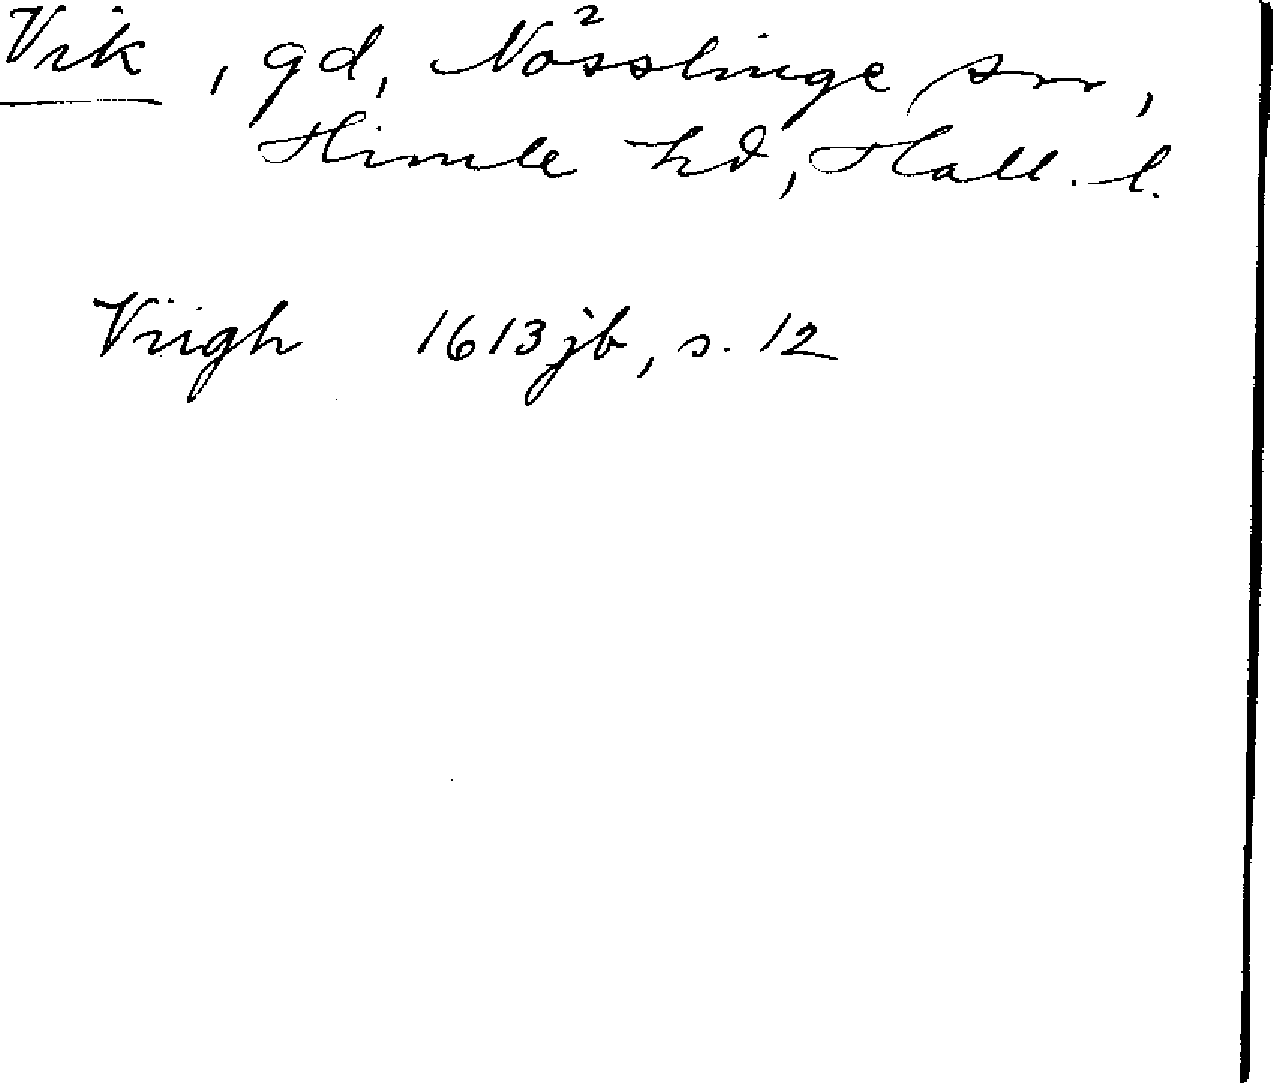 Vik, gd, Nösslinge sn,
Himle hd, Hall. l.
Viigh 1613 jb, s. 12